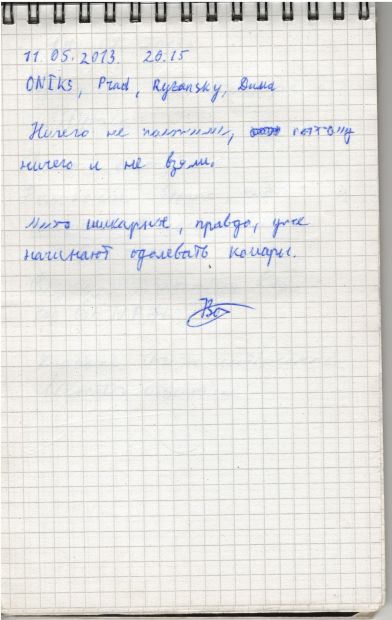 11.05.2013. 20.15
ONIKS, Prad, Ryzansky, Дима
Ничего не положили, поэтому
ничего и не взяли.
шикарное, правда, уже
начинают одолевать комары.